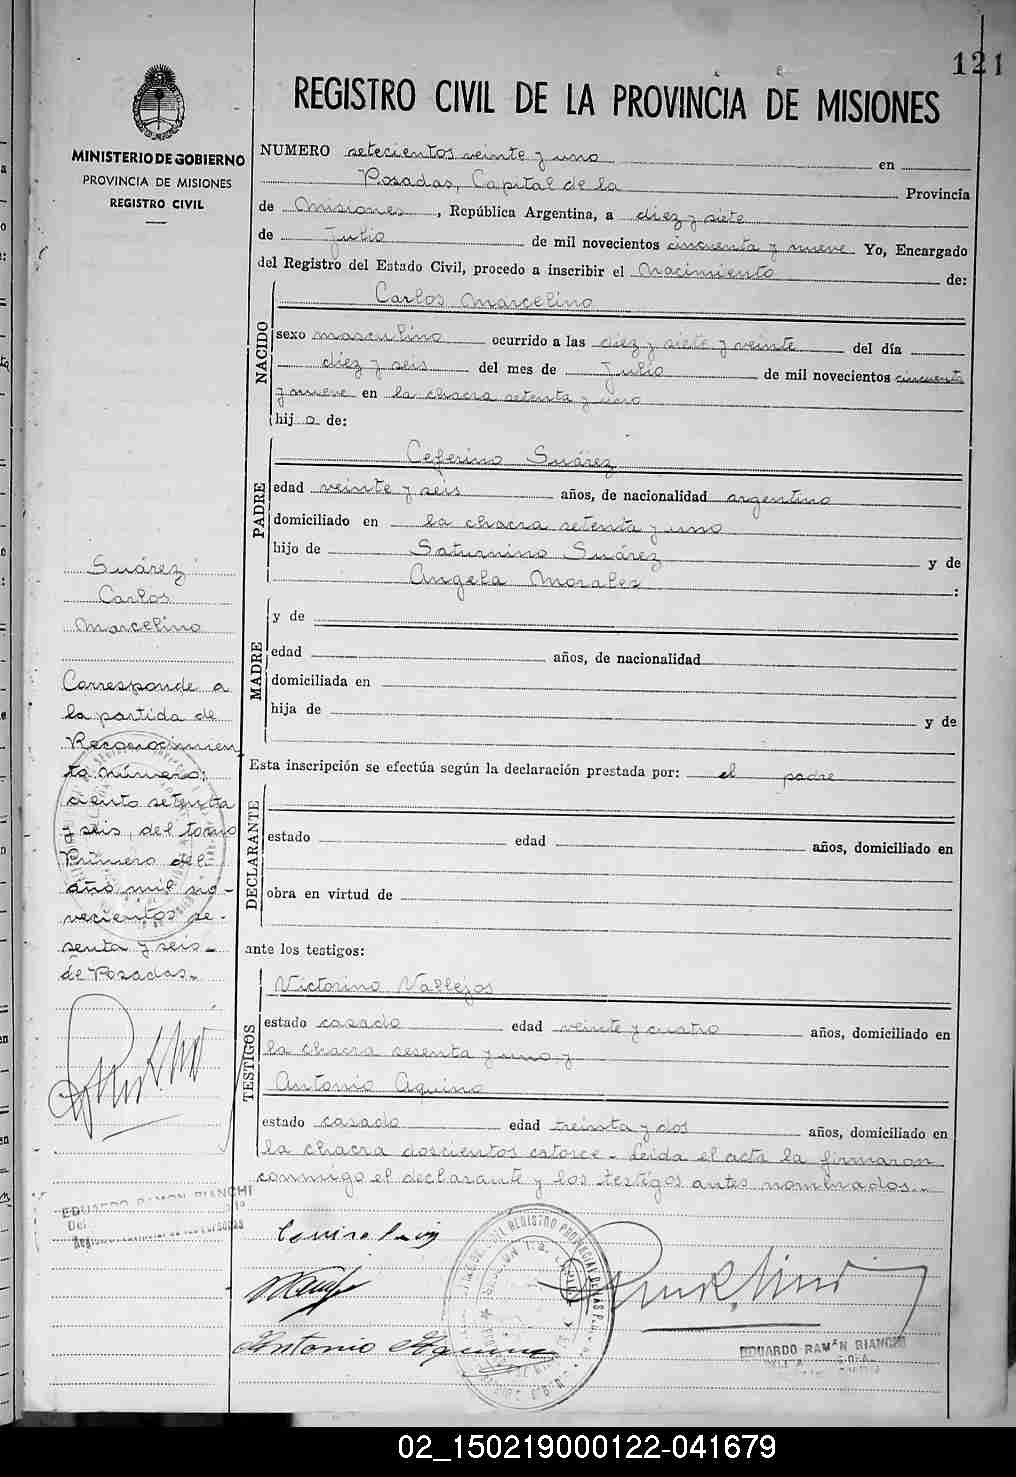 121
REGISTRO CIVIL DE LA PROVINCIA DE MISIONES
MINISTERIO DE GOBIERNO
PROVINCIA DE MISIONES
REGISTRO CIVIL
NUMERO setecientos veinte y uno en
Posadas, Capital de la Provincia
de Misiones, República Argentina, a diez y siete
de Julio de mil novecientos cincuenta y nueve Yo, Encargado
del Registro del Estado Civil, procedo a inscribir el Nacimiento de:
NACIDO
Carlos Marcelino
sexo masculino ocurrido a las diez y siete y veinte del día
diez y seis del mes de Julio de mil novecientos cincuenta
y nueve en la chacra setenta y uno
hij o de:
PADRE
Ceferino Suárez
edad veinte y seis años, de nacionalidad argentino
domiciliado en la chacra setenta y uno
hijo de Saturnino Suárez y de
Angela Morales :
MADRE
y de
edad años, de nacionalidad
domiciliada en
hija de y de
Esta inscripción se efectúa según la declaración prestada por: el padre
DECLARANTE
estado edad años, domiciliado en
obra en virtud de
ante los testigos:
TESTIGOS
Victorino Vallejos
estado casado edad veinte y cuatro años, domiciliado en
la chacra sesenta y uno y
Antonio Aquino
estado casado edad treinta y dos años, domiciliado en
la chacra doscientos catorce - Leída el acta la firmaron
conmigo el declarante y los testigos antes nombrados.-
Suárez
Carlos
Marcelino
Corresponde a
la partida de
Reconocimien
to número:
ciento setenta
y seis, del tomo
Primero del
año mil no-
vecientos se-
senta y seis-
de Posadas.-
EDUARDO RAMON BIANCHI
Antonio Aquino
EDUARDO RAMÓN BIANCHI
02_150219000122-041679